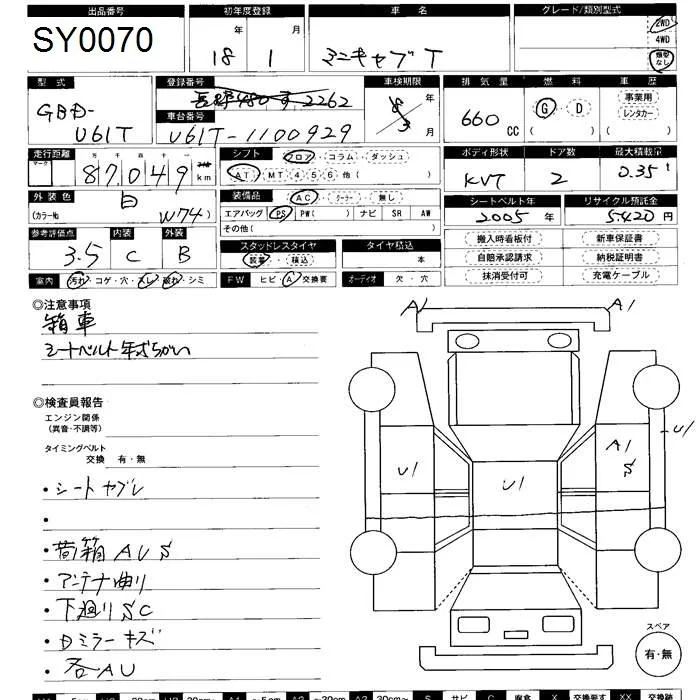 出品番号 初年度登録 車名 グレード/類別型式
SY0070 18年 1月 ミニキャブT 2WD 4WD 類別なし
型式 登録番号 車検期限 排気量 燃料 車歴
GBD-U61T 2262 8年 3月 660cc G・D ( ) 事業用 レンタカー ( )
車台番号
U61T-1100929
走行距離 シフト フロア・コラム・ダッシュ ボディ形状 ドア数 最大積載量
マーク 十万千百十一 87,049 km AT・MT(4 5 6 他( ) KVT 2 0.35t
外装色 白 (カラーNo W74) 装備品 AC・クーラー・無し シートベルト年式 リサイクル預託金
エアバッグ PS PW( ) ナビ SR AW 2005年 5,420円
その他( )
参考評価点 内装 外装 スタッドレスタイヤ タイヤ積込 搬入時看板付 新車保証書
3.5 C B 装着・積込 本 自賠承認請求 納税証明書
室内 汚れ・コゲ・穴・スレ・破れ・シミ FW ヒビ・A・交換要 オーディオ 欠・穴 抹消受付可 充電ケーブル
◎注意事項
箱車
シートベルト年式ちがい
◎検査員報告
エンジン関係
(異音・不調等)
タイミングベルト
交換 有・無
・シートヤブレ
・
・荷箱AUS
・アンテナ曲り
・下廻りSC
・Dミラーキズ
・各AU
A1 A1
U1 U1 A1 S U1
スペア
有・無